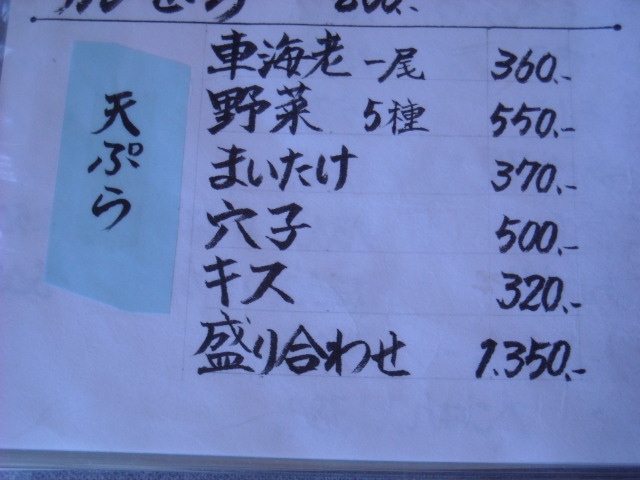 800.-
天ぷら
車海老 一尾 360.-
野菜 5種 550.-
まいたけ 370.-
穴子 500.-
キス 320.-
盛り合わせ 1.350.-